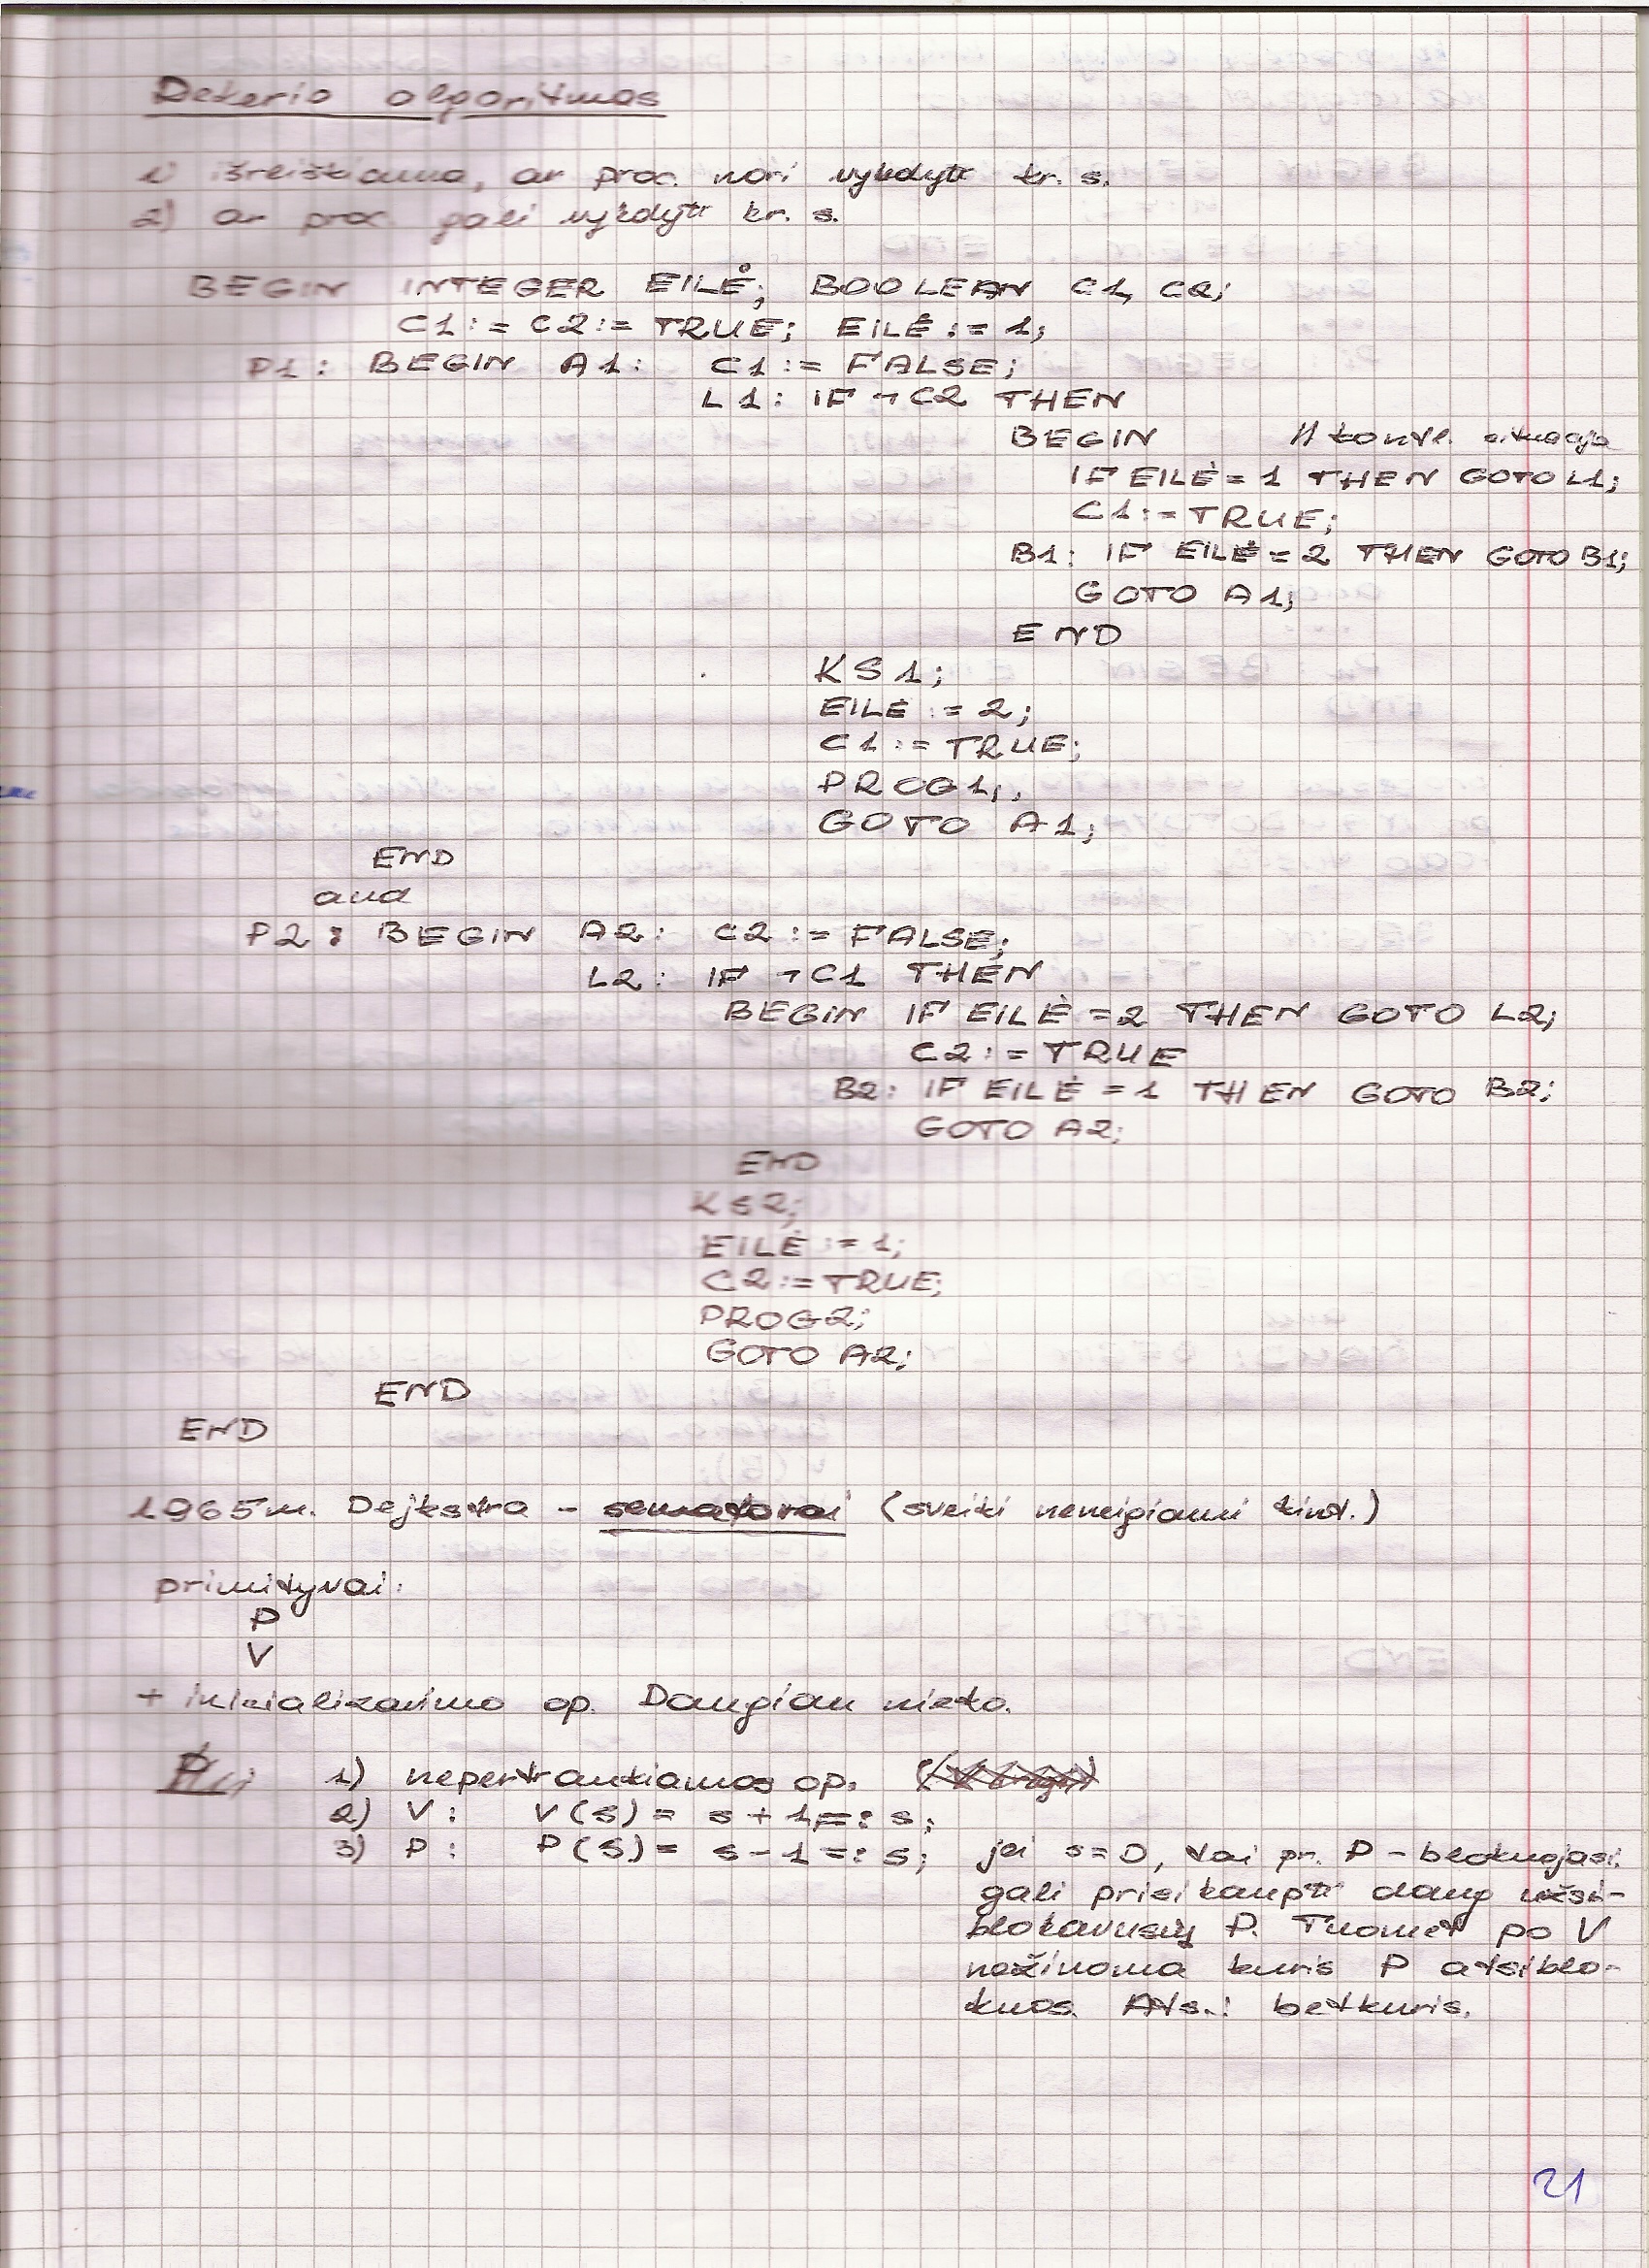 Dekerio algoritmas
1) išreiškiama, ar proc. nori vykdyti kr. s.
2) ar proc. gali vykdyti kr. s.
BEGIN INTEGER EILĖ; BOOLEAN C1, C2;
C1 := C2 := TRUE; EILĖ := 1;
P1: BEGIN A1: C1 := FALSE;
L1: IF ¬C2 THEN
BEGIN // konfl. situacija
IF EILĖ = 1 THEN GOTO L1;
C1 := TRUE;
B1: IF EILĖ = 2 THEN GOTO B1;
GOTO A1;
END
KS1;
EILĖ := 2;
C1 := TRUE;
PROG1;
GOTO A1;
END
and
P2: BEGIN A2: C2 := FALSE;
L2: IF ¬C1 THEN
BEGIN IF EILĖ = 2 THEN GOTO L2;
C2 := TRUE
B2: IF EILĖ = 1 THEN GOTO B2;
GOTO A2;
END
KS2;
EILĖ := 1;
C2 := TRUE;
PROG2;
GOTO A2;
END
END
1965m. Dejkstra - semaforai (sveiki neneigiami kint.)
primityvai:
P
V
+ inicializavimo op. Daugiau nieko.
1) nepertraukiamos op.
2) V: V(s) = s + 1 =: s;
3) P: P(s) = s - 1 =: s; jei s = 0, tai pr. P - blokuojasi.
gali prisikaupti daug užsi-
blokavusių P. Tuomet po V
nežinoma kuris P atsiblo-
kuos. Ats.: betkuris.
21